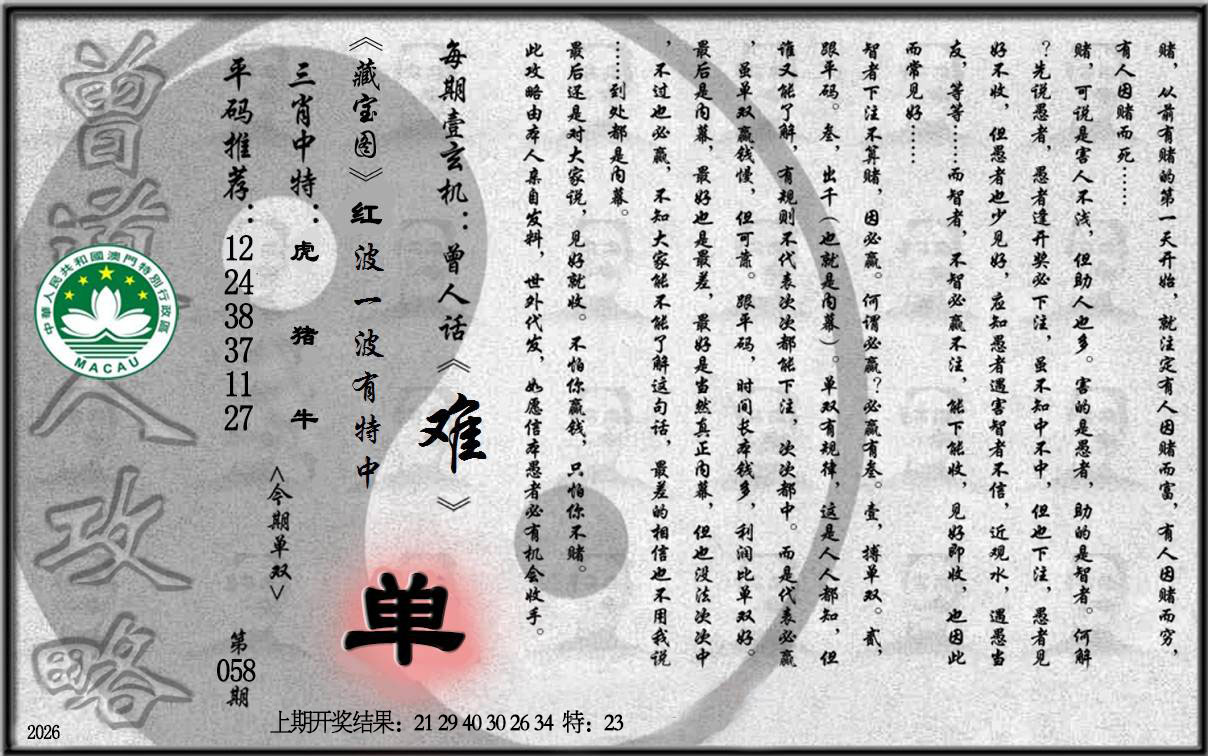 赌，从前有赌的第一天开始，就注定有人因赌而富，有人因赌而穷，
有人因赌而死……
赌，可说是害人不浅，但助人也多。害的是愚者，助的是智者。何解
？先说愚者，愚者逢开奖必下注，虽不知中不中，但也下注，愚者见
好不收，但愚者也少见好，应知愚者遇害智者不信，近观水，遇愚当
友，等等……而智者，不智必赢不注，能下能收，见好即收，也因此
而常见好……
智者下注不算赌，因必赢。何谓必赢？必赢有叁。壹，搏单双。贰，
跟平码。叁，出千（也就是内幕）。单双有规律，这是人人都知，但
谁又能了解，有规则不代表次次都能下注，次次都中。而是代表必赢
，虽单双赢钱慢，但可靠。跟平码，时间长本钱多，利润比单双好。
最后是内幕，最好也是最差，最好是当然真正内幕，但也没法次次中
，不过也必赢，不知大家能不能了解这句话，最差的相信也不用我说
……到处都是内幕。
最后还是对大家说，见好就收。不怕你赢钱，只怕你不赌。
此攻略由本人亲自发料，世外代发，如愿信本愚者必有机会收手。
每期壹玄机：曾人话《难》
《藏宝图》红波一波有特中
单
三肖中特：虎 猪 牛
<今期单双>
平码推荐：12 24 38 37 11 27
第058期
曾道人攻略
中華人民共和國澳門特別行政區
MACAU
2026
上期开奖结果：21 29 40 30 26 34 特：23